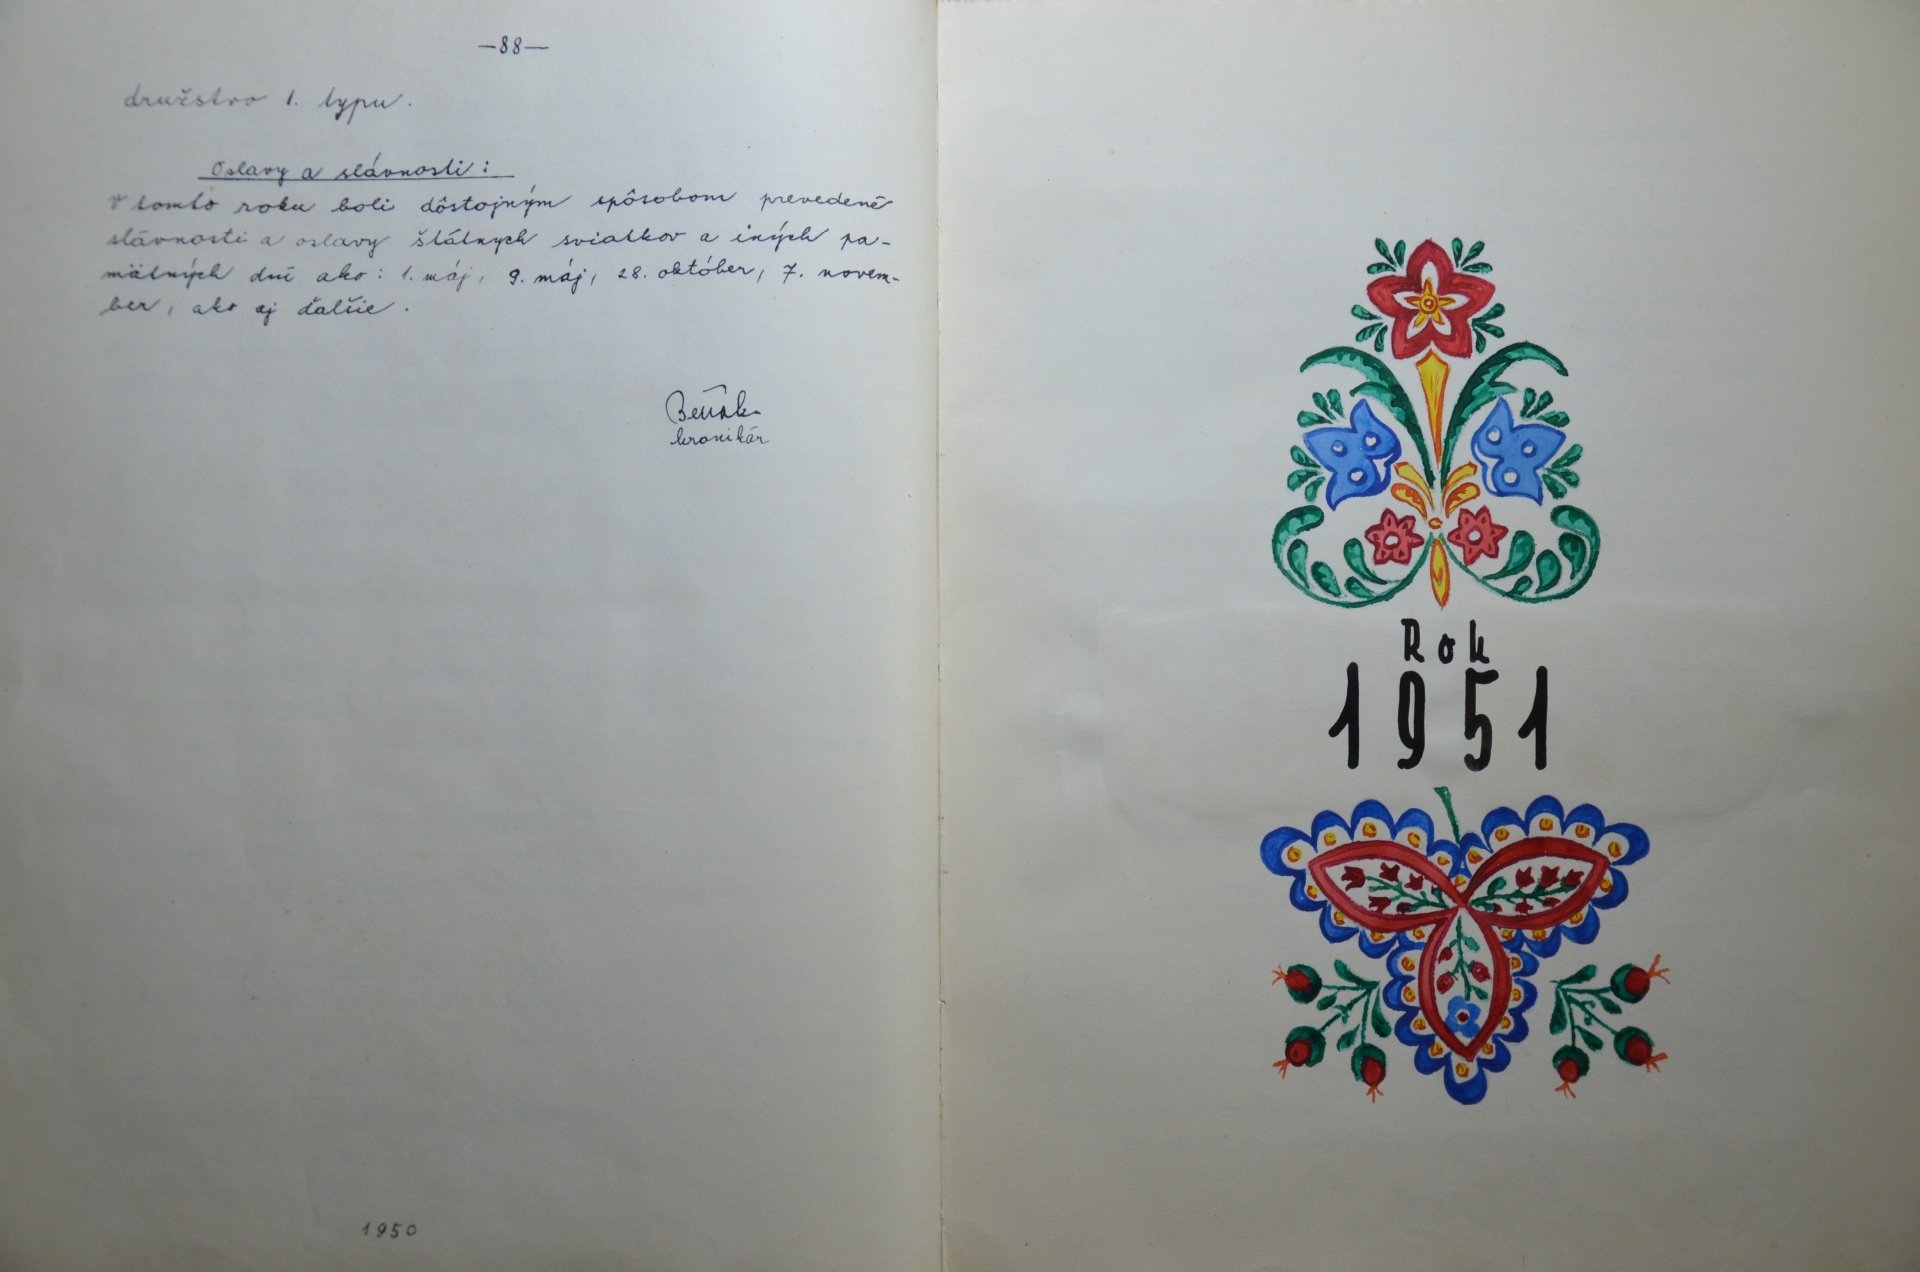 —88—
družstvo 1. typu.
Oslavy a slávnosti:
V tomto roku boli dôstojným spôsobom prevedené
slávnosti a oslavy štátnych sviatkov a iných pa-
mätných dní ako: 1. máj, 9. máj, 28. október, 7. novem-
ber, ako aj ďalšie.
kronikár
1950
Rok
1951